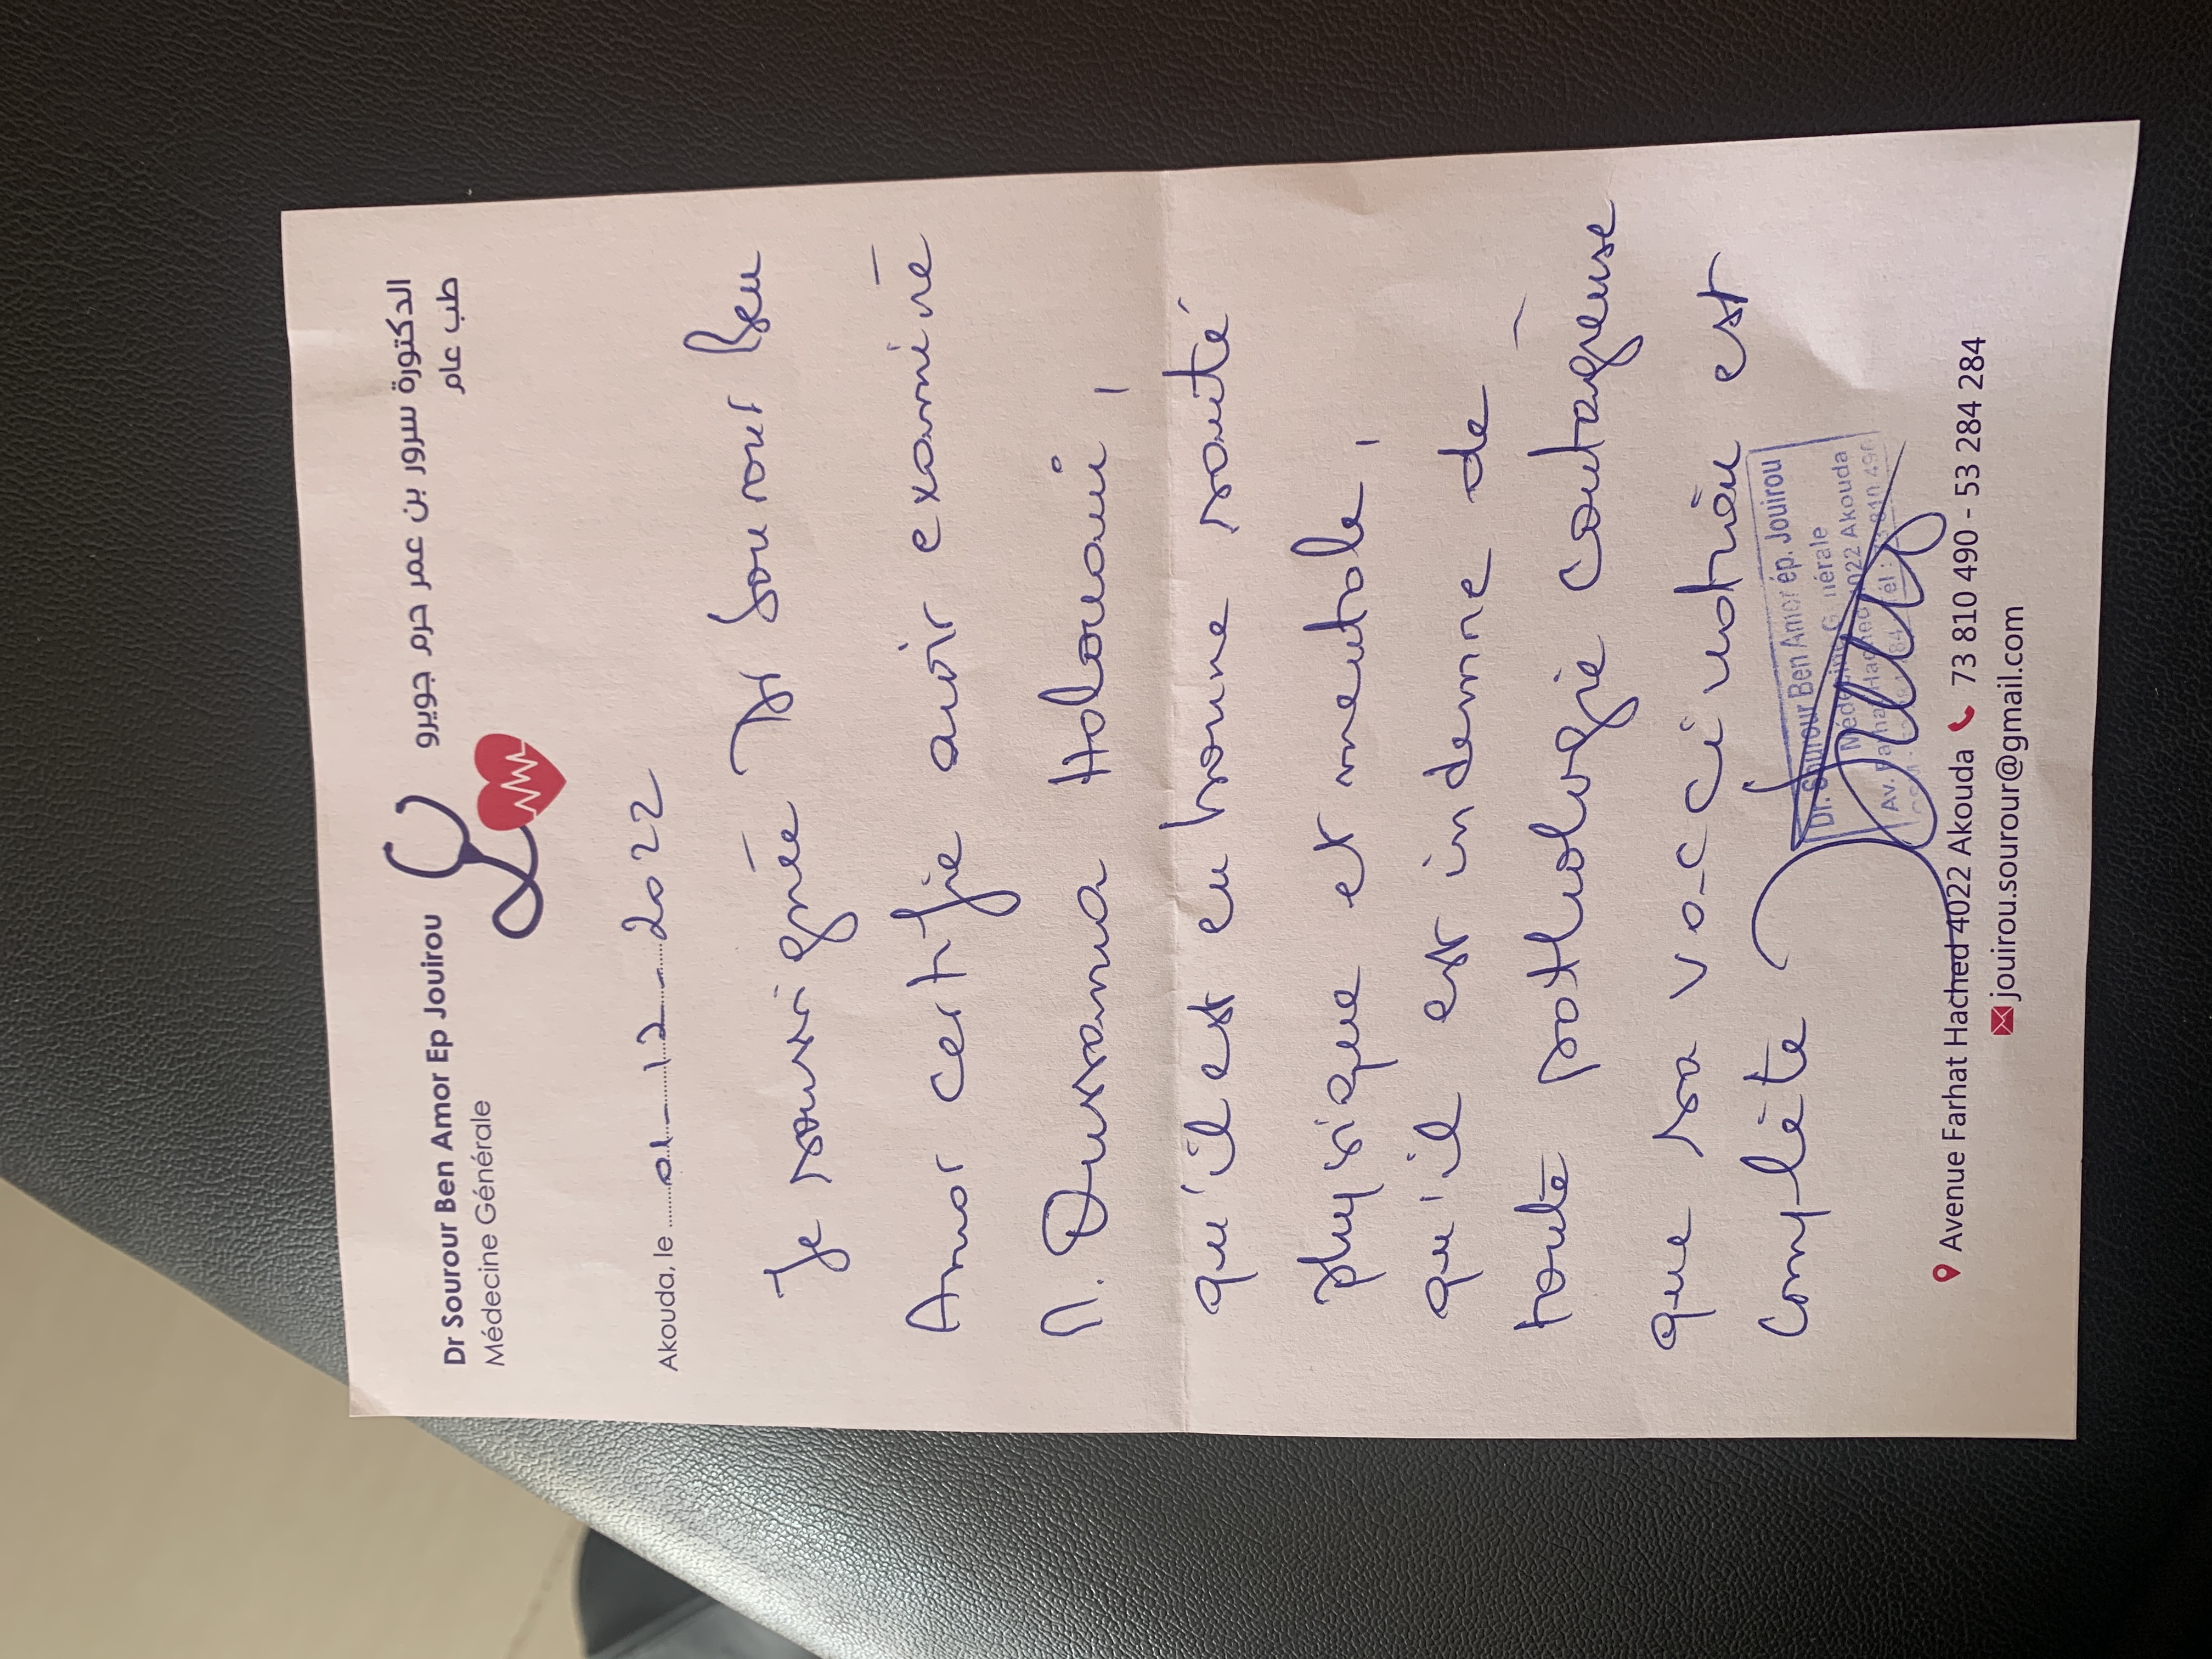 Dr Sourour Ben Amor Ep Jouirou
Médecine Générale
الدكتورة سرور بن عمر حرم جويرو
طب عام
Akouda, le 01-12-2022
Je soussignée Dr Sourour Ben
Amor certifie avoir examiné
M. Oussama Halouani,
qu'il est en bonne santé
physique et mentale,
qu'il est indemne de
toute pathologie contagieuse
que sa vaccination est
complète
Dr. Sourour Ben Amor ép. Jouirou
Médecine Générale
Av. Farhat Hached 4022 Akouda
Tél : 73 810 490
Avenue Farhat Hached 4022 Akouda 73 810 490 - 53 284 284
jouirou.sourour@gmail.com